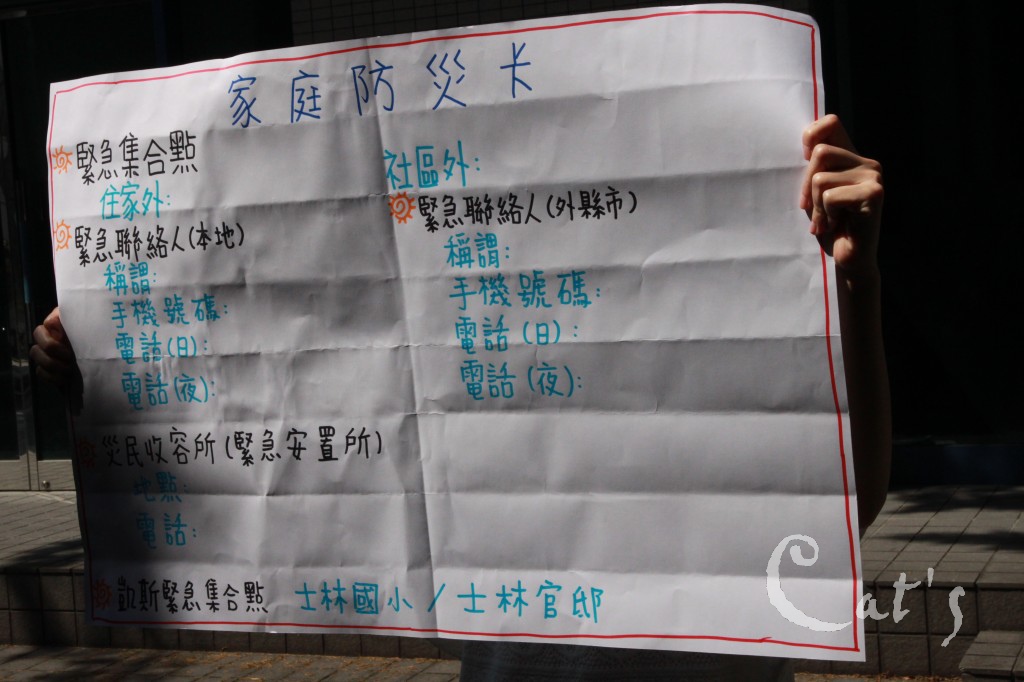 家庭防災卡
緊急集合點
住家外:
社區外:
緊急聯絡人(本地)
稱謂:
手機號碼:
電話(日):
電話(夜):
緊急聯絡人(外縣市)
稱謂:
手機號碼:
電話(日):
電話(夜):
災民收容所(緊急安置所)
地點:
電話:
凱斯緊急集合點 士林國小/士林官邸
Cat's